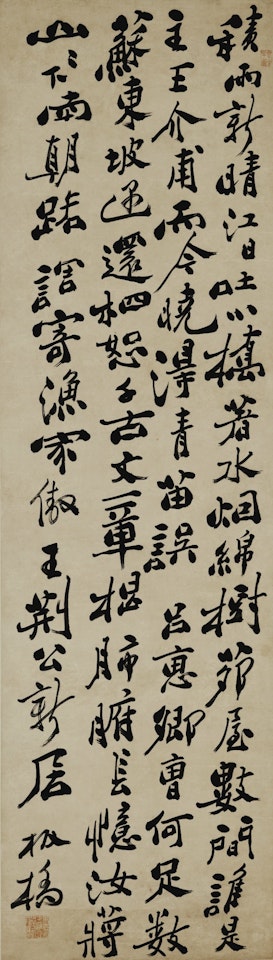 積雨新晴江日吐小橋著水烟綿樹茆屋數間誰是
主王介甫而今曉得青苗誤呂惠卿曹何足數
蘇東坡遇還相恕千古文章根肺腑長憶汝蔣
山〻下南朝路調寄漁家傲王荊公新居板橋